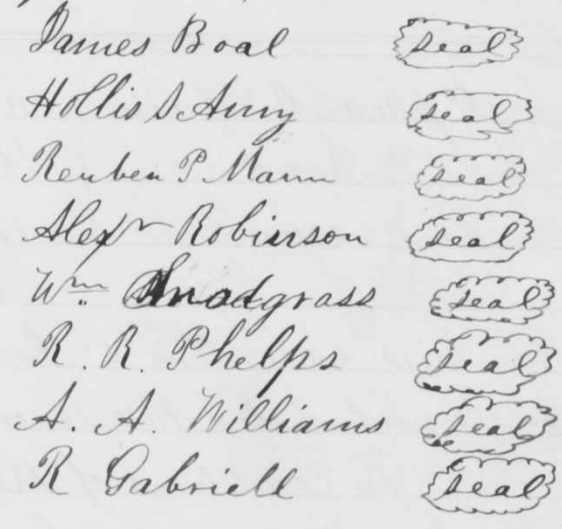 James Boal seal
Hollis S Amy seal
Reuben P. Mann seal
Alexr Robinson seal
Wm. Snodgrass seal
R. R. Phelps seal
A. A. Williams seal
R Gabriell seal